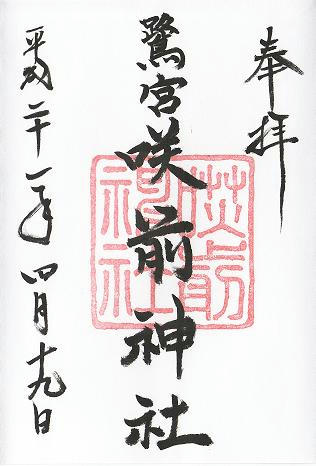 奉拝
鷺宮咲前神社
平成二十一年四月十九日
前
神社